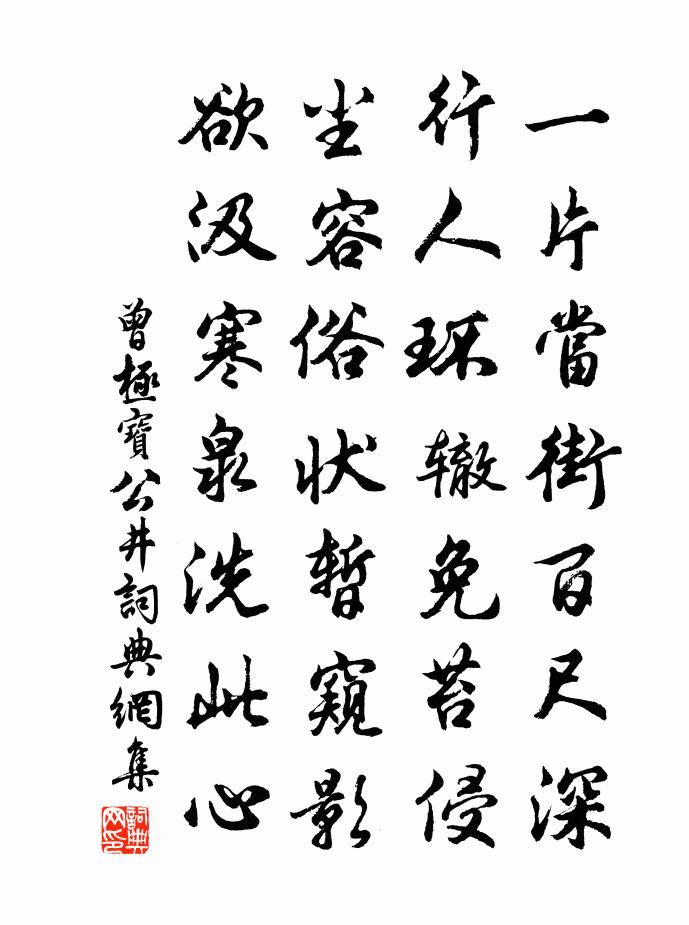 一片當街百尺深
行人环辙免苔侵
尘容俗状暫窺影
欲汲寒泉洗此心
曾極寶公井詞典網集
詞典网印